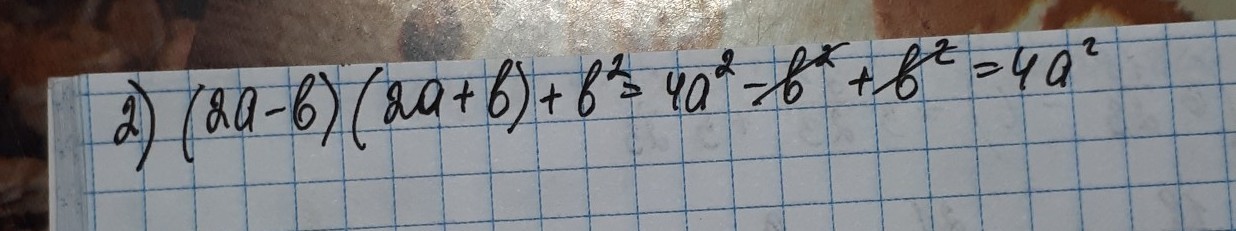 2) (2a-b)(2a+b)+b²=4a²-b²+b²=4a²